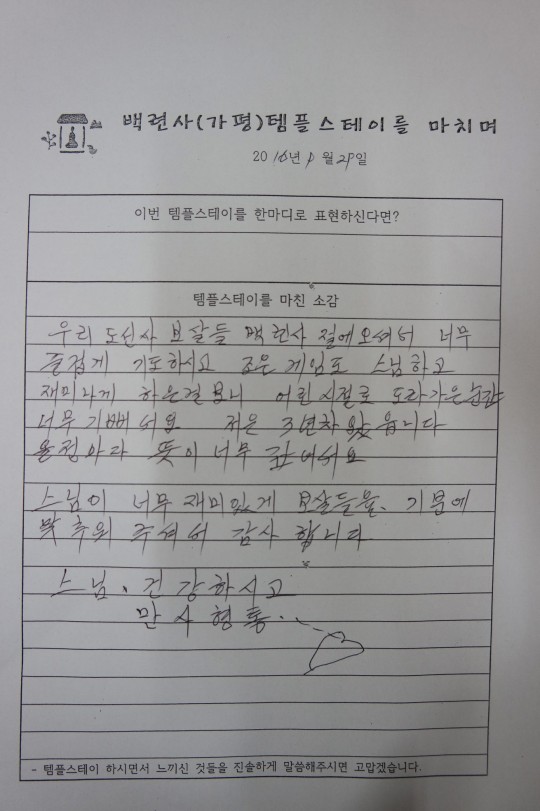 백련사(가평)템플스테이를 마치며
2016년 1월 29일
이번 템플스테이를 한마디로 표현하신다면?
템플스테이를 마친 소감
우리 도선사 보살들 백련사 절에오셔서 너무
즐겁게 기도하시고 조은게임도 스님하고
재미나게 하은걸보니 어린시절로 도라가은순간
너무기뻐서요 저은 3년차왔읍니다
뜻이 너무
스님이 너무재미있게 보살들을、기분에
맞추워 주셔서 감사 합니다
스님、건강하시고
만사형통..
- 템플스테이 하시면서 느끼신 것들을 진솔하게 말씀해주시면 고맙겠습니다.